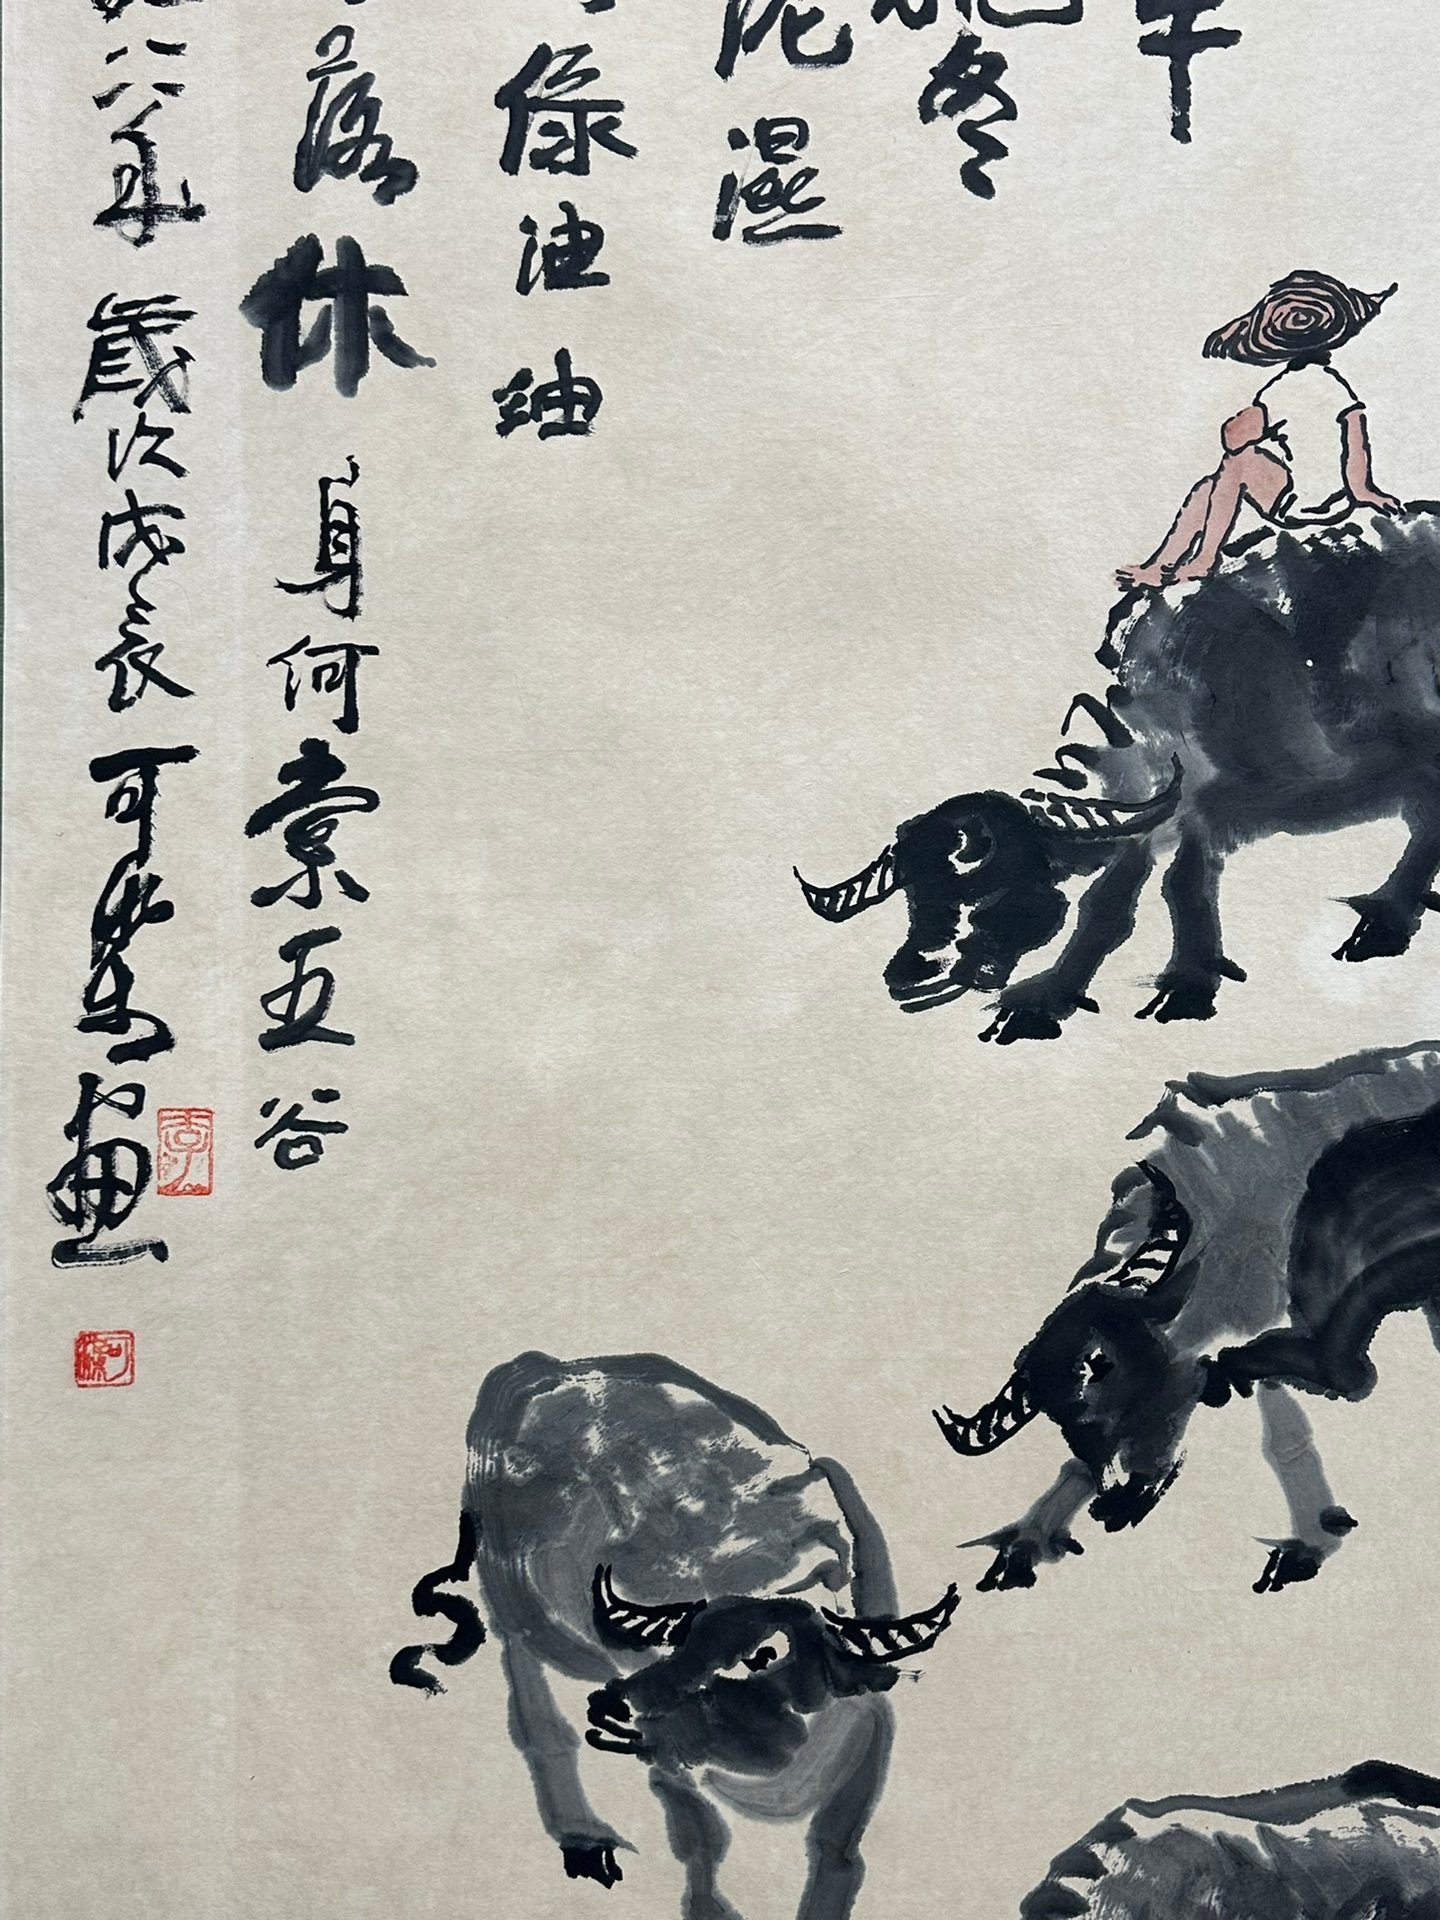 牛
冬
泥湿
绿油油
落休身何索五谷
八年岁次戊辰可染画